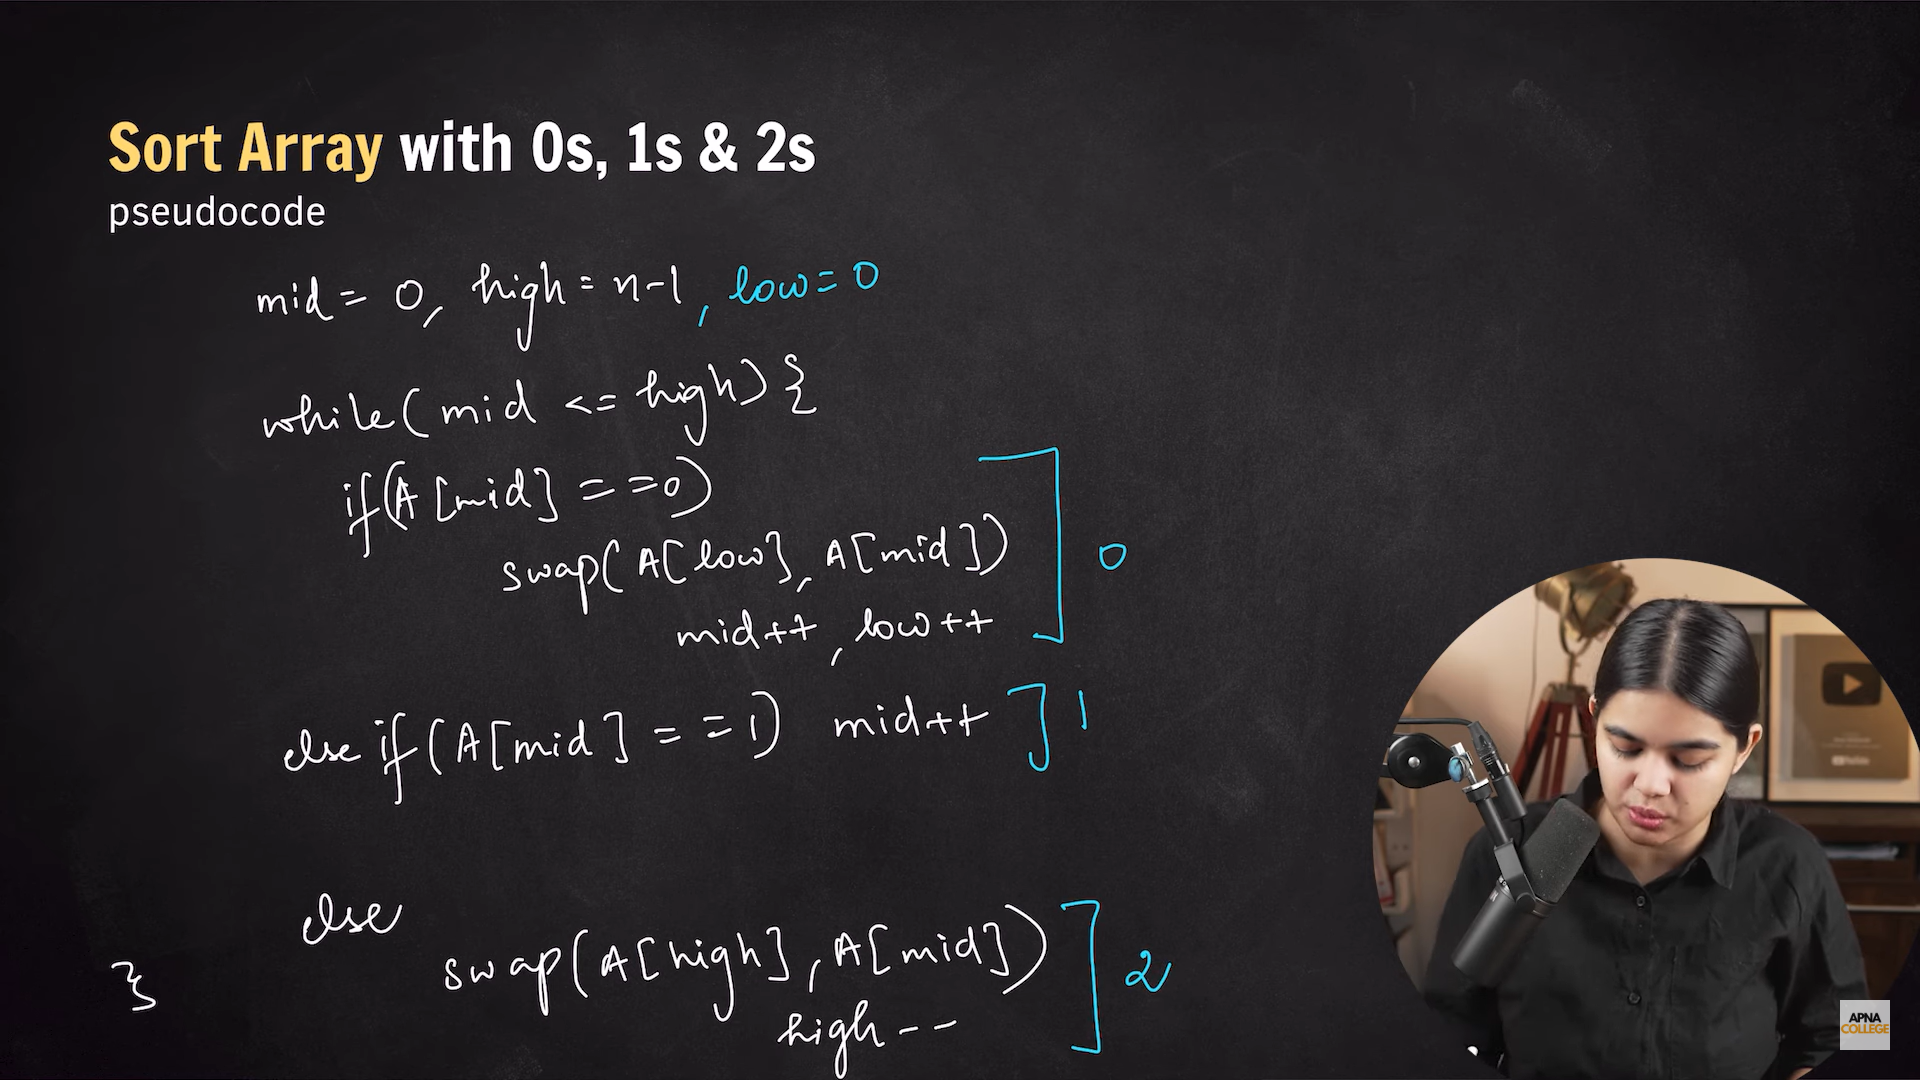 Sort Array with 0s, 1s & 2s
pseudocode
mid = 0, high = n-1, low = 0
while( mid <= high) {
if(A[mid] == 0)
swap( A[low], A[mid])
mid++, low++
0
else if( A[mid] == 1) mid++
1
else
swap( A[high], A[mid])
high--
2
}
APNA
COLLEGE